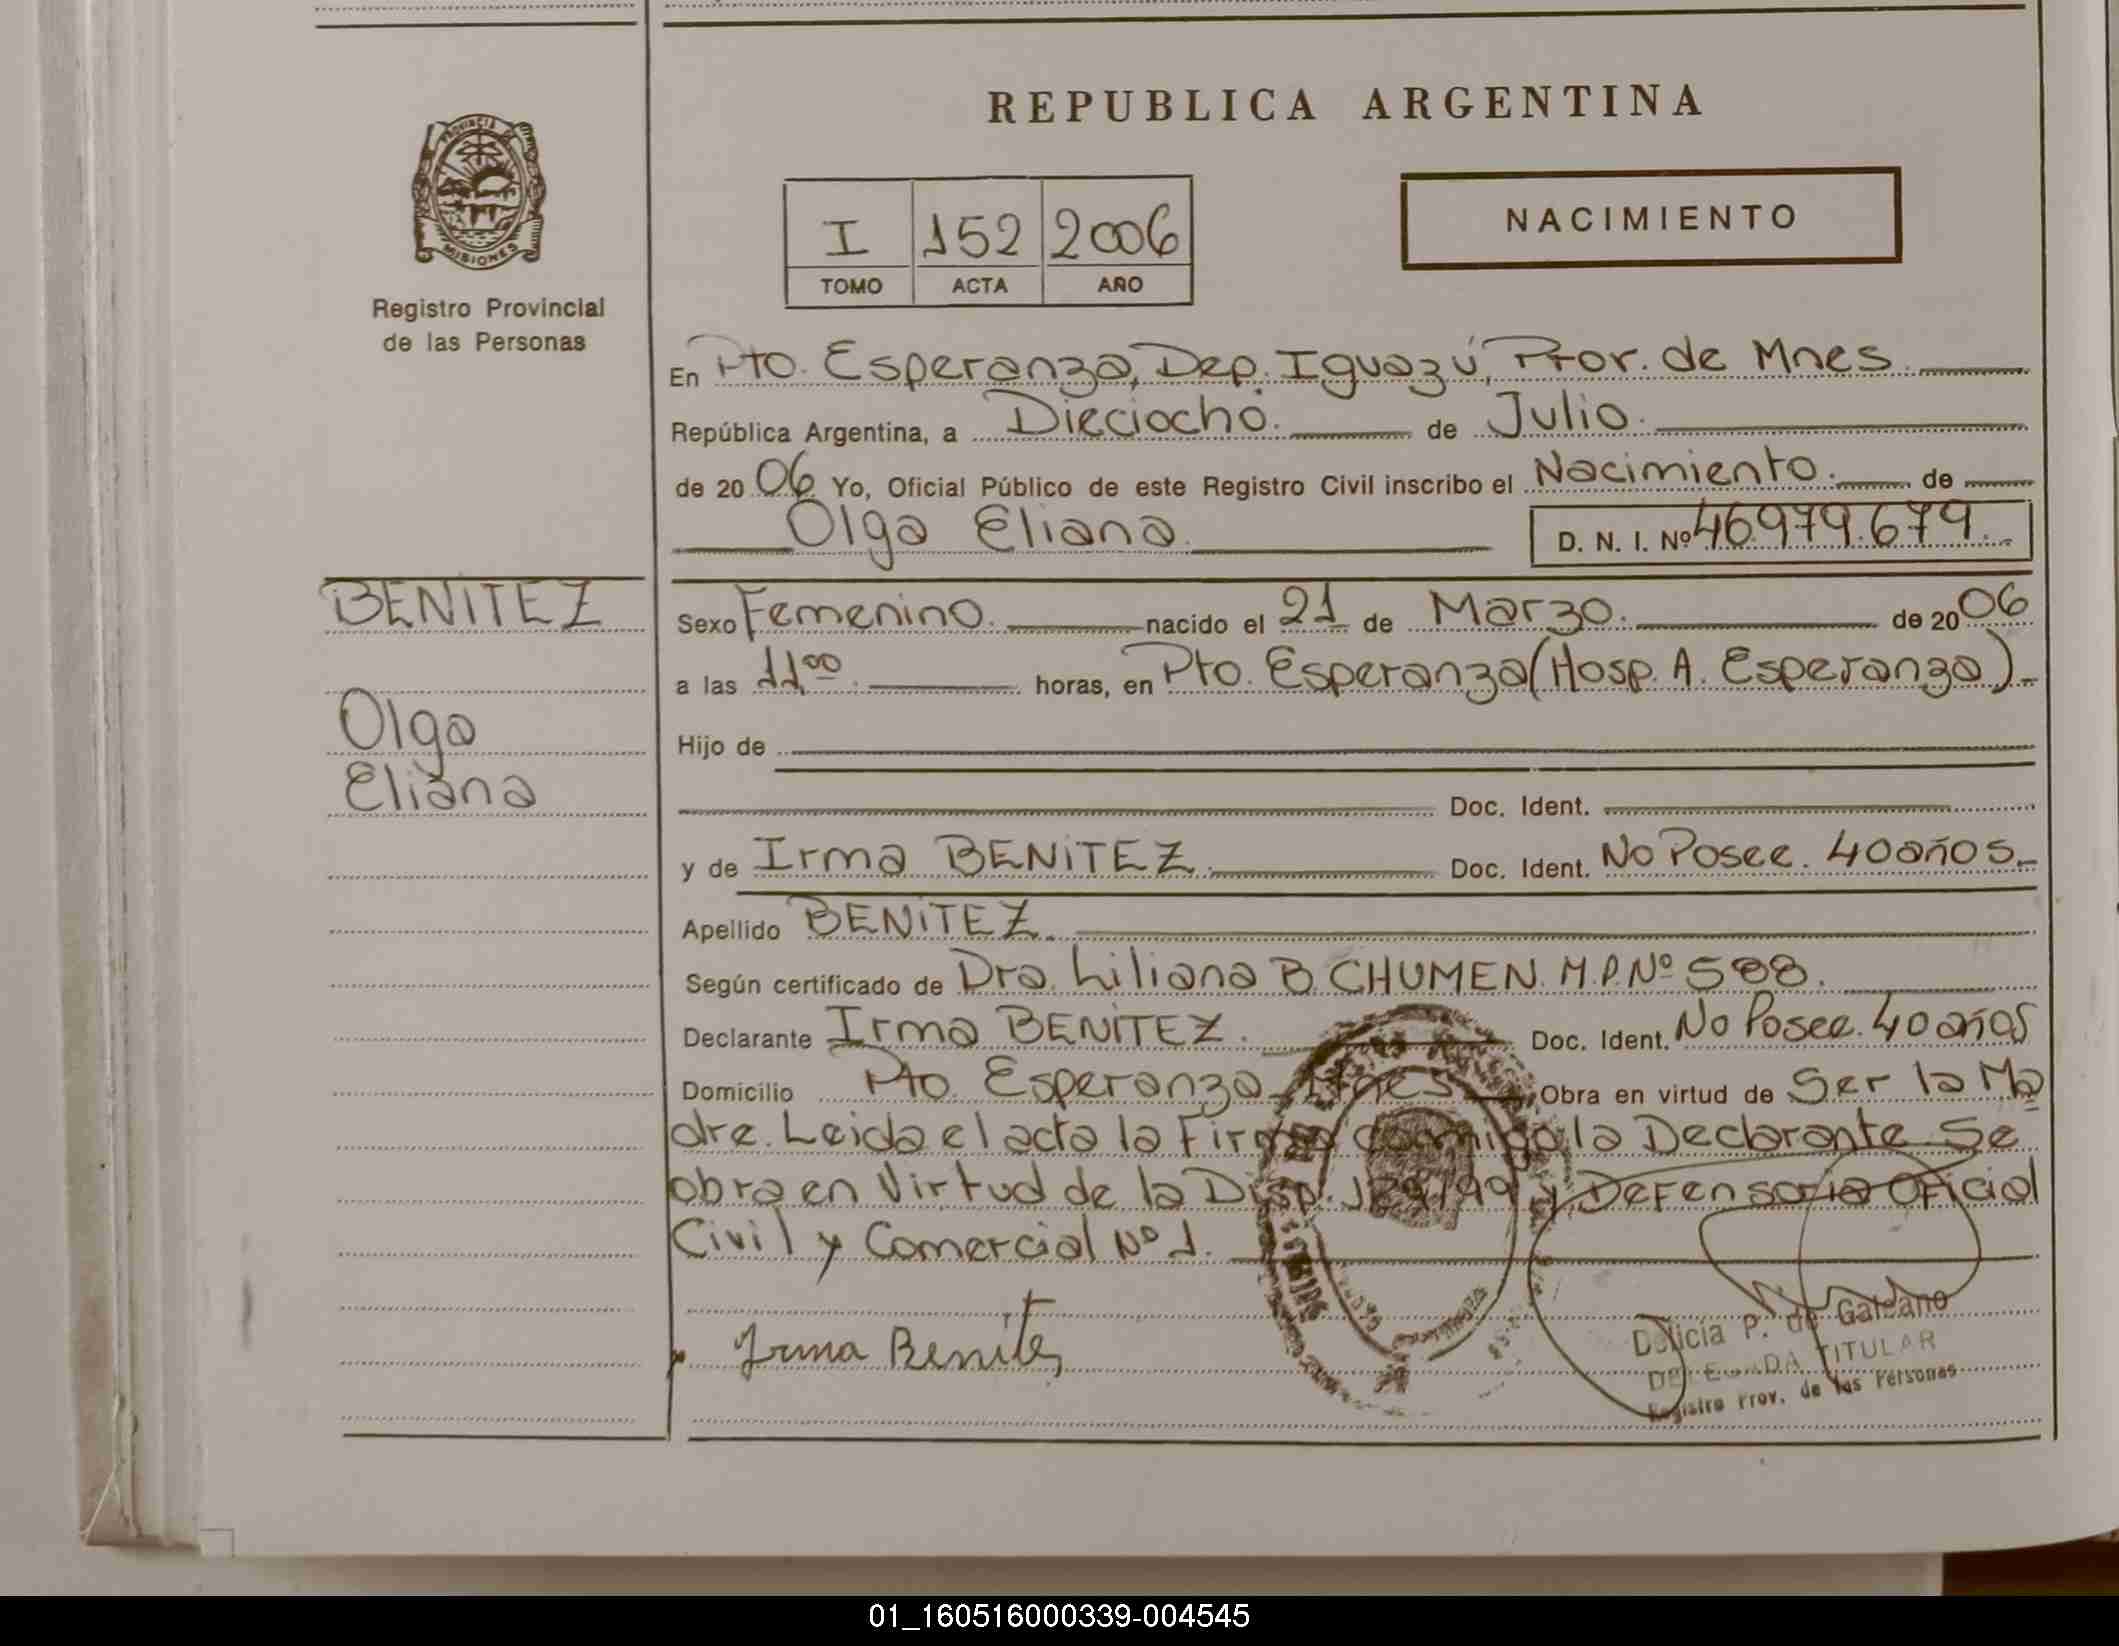 REPUBLICA ARGENTINA
PROVINCIA DE
MISIONES
Registro Provincial
de las Personas
I 152 2006
TOMO ACTA AÑO
NACIMIENTO
En Pto. Esperanza, Dep. Iguazú, Prov. de Mnes
República Argentina, a Dieciocho. de Julio.
de 20 06 Yo, Oficial Público de este Registro Civil inscribo el Nacimiento. de
Olga Eliana. D. N. I. Nº 46.979.679.
BENITEZ
Olga
Eliana
Sexo Femenino. nacido el 21 de Marzo. de 20 06
a las 11,00. horas, en Pto. Esperanza (Hosp. A. Esperanza)
Hijo de
Doc. Ident.
y de Irma BENITEZ. Doc. Ident. No Posee. 40 años.
Apellido BENITEZ.
Según certificado de Dra. Liliana B. CHUMEN. M.P. Nº 588.
Declarante Irma BENITEZ. Doc. Ident. No Posee. 40 años
Domicilio Pto. Esperanza Mnes Obra en virtud de Ser la Ma
dre. Leida el acta la Firma conmigo la Declarante. Se
obra en Virtud de la Disp. y Defensoria Oficial
Civil y Comercial Nº 1.
Irma Benitez
Delicia P. de Galeano
DELEGADA TITULAR
Registro Prov. de las Personas
01_160516000339-004545